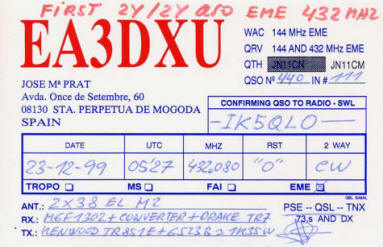 FIRST 2Y/2Y QSO EME 432 MHZ
EA3DXU
WAC 144 MHz EME
QRV 144 AND 432 MHz EME
QTH JN11CN JN11CM
QSO Nº 440 IN # 111
JOSE Mª PRAT
Avda. Once de Setembre, 60
08130 STA. PERPETUA DE MOGODA
SPAIN
CONFIRMING QSO TO RADIO - SWL
-IK5QLO-
DATE UTC MHz RST 2 WAY
23-12-99 0527 432.080 "O" CW
TROPO MS FAI EME
ANT.: 2X38 EL M2
PSE -- QSL -- TNX
RX.: MGF1302+CONVERTER+DRAKE TR7
73,s AND DX
TX.: KENWOOD TR851E+